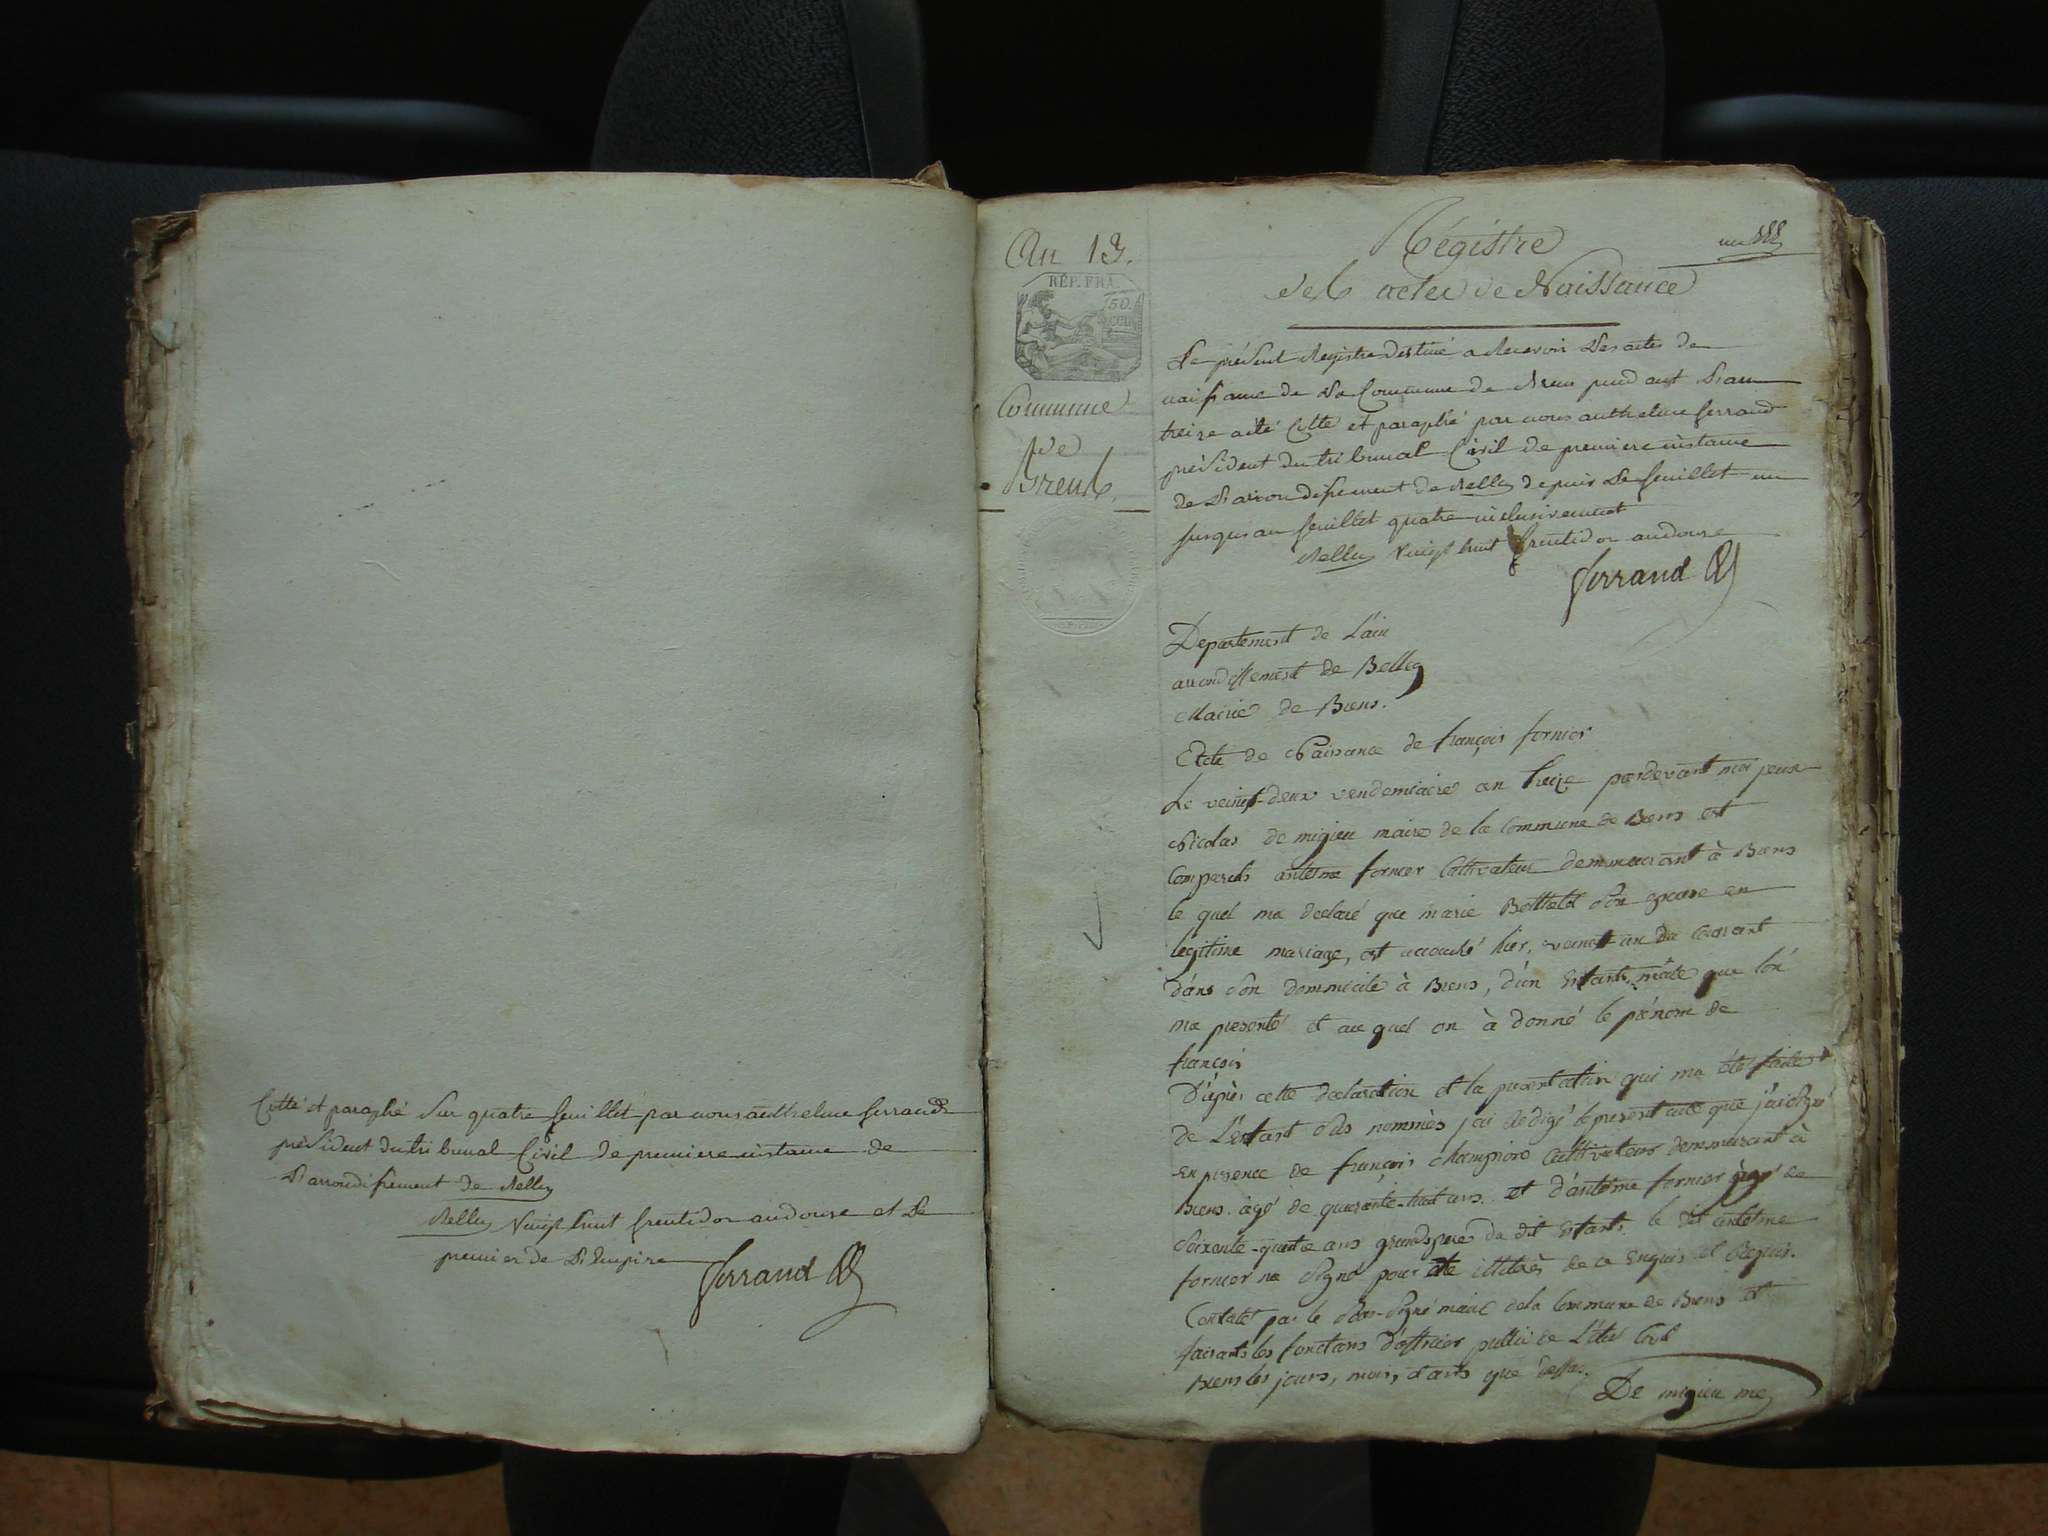 Cotté et paraphé sur quatre feuillets par nous anthelme ferrand
président du tribunal Civil de premiere instance de
L'arrondissement de Belley
Belley vingt huit fructidor an douze et Le
premier de L'Empire
ferrand
An 13.
RÉP. FRA.
50.
CEN
Commune
de
Brens.
Régistre
des actes de Naissance
Le présent Registre destiné a Recevoir Les actes de
naissance de La Commune de Brens pendant L'an
treize a été Cotté et paraphé par nous anthelme ferrand
président du tribunal Civil de premiere instance
de L'arrondissement de Belley depuis Le feuillet un
jusqu'au feuillet quatre inclusivement
Belley vingt huit fructidor an douze
ferrand
Departement de L'ain
arrondissement de Belley
Mairie de Brens.
Acte de Naissance de françois fornier
Le veingt-deux vendemiaire an treize pardevant moi jean
Nicolas de migieu maire de la Commune de Brens est
Comparus antelme fornier Cultivateur demmeurant à Brens
le quel ma declaré que marie Berthelet son epouse en
legitime mariage, est accouché hier, veingt-un du courant
dans son dommicile à Brens, d'un Enfant mâle que l'on
ma presenté et au quel on à donné le prénom de
françois
D'après cette declaration et la presentation qui ma été faite
de L'Enfant sus nommés j'ai redigé le present acte que j'ai signé
En presence de françois Cultivateur demmeurant à
Brens agé de quarante-huit ans et d'antelme fornier agé de
soixente- ans grand-pere du dit Enfant, le dit antelme
fornier ne signe pour être illitéré de ce Enquis et Requis.
Constaté par le sous-signé maire de la Commune de Brens et
faisant les fonctions d'officier public de L'état Civil
Brens les jours, mois, et ans que dessus.
De migieu me